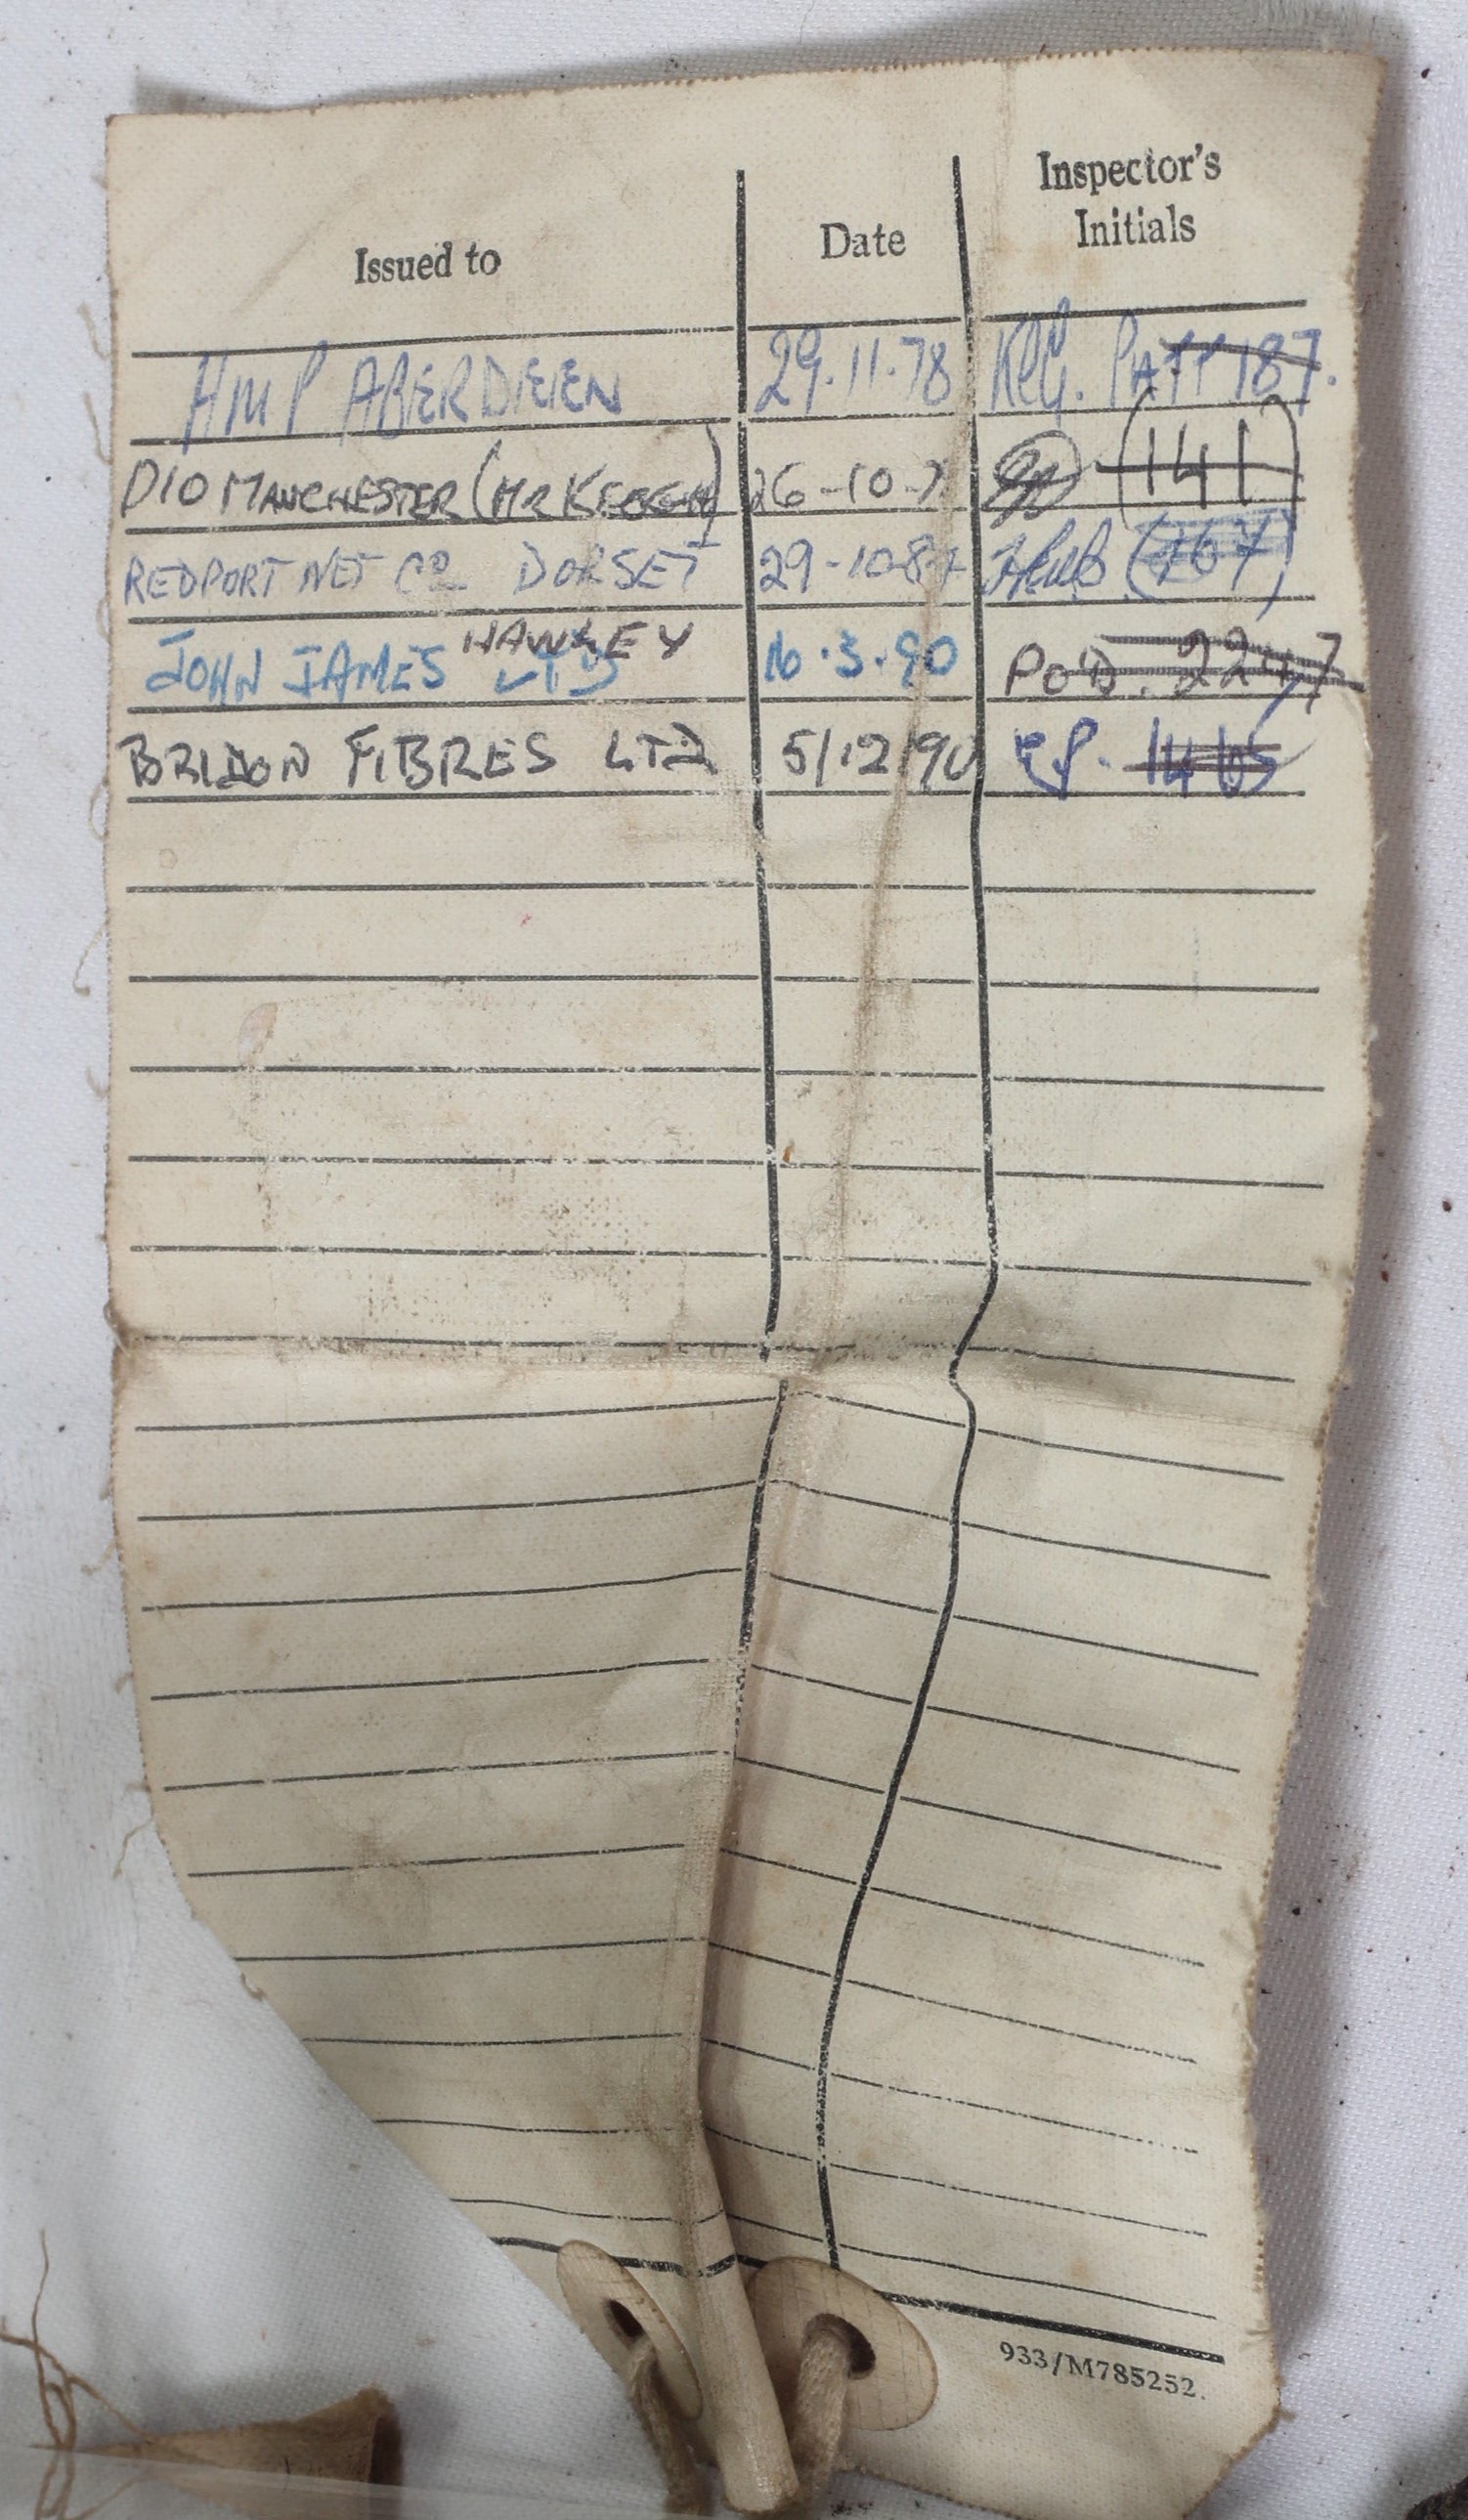 Issued to Date Inspector's
Initials
HMP ABERDEEN 29.11.78 PATT 187.
DIO MANCHESTER (MR KEOGH) 26-10-7 (141)
REDPORT NET CO DORSET 29-10-87 (167)
JOHN JAMES HAWLEY LTD 16.3.90 POD. 2247
BRIDON FIBRES LTD 5/12/90 1465
933/M785252.